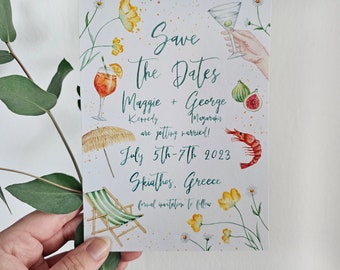 Save
The Dates
Maggie + George
Kennedy
are getting married!
July 5th-7th 2023
Skiathos, Greece
formal invitation to follow